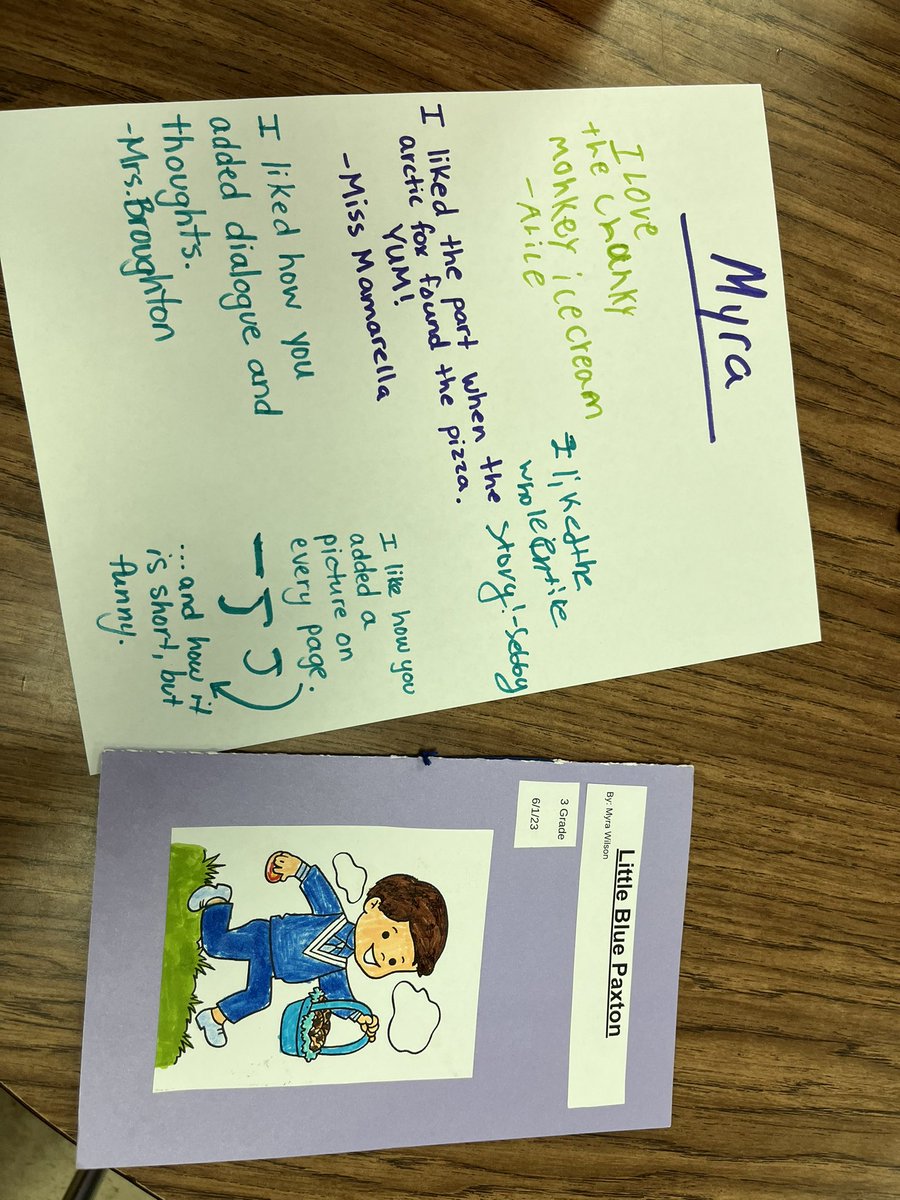 Myra
I Love
the chanky
monkey icecream
-Alice
I liked the
whole Entile
story! -Sebby
I liked the part when the
arctic fox found the pizza.
YUM!
-Miss Mamarella
I liked how you
added dialogue and
thoughts.
-Mrs. Broughton
I like how you
added a
picture on
every page.
...and how it
is short, but
funny.
Little Blue Paxton
By: Myra Wilson
3 Grade
6/1/23